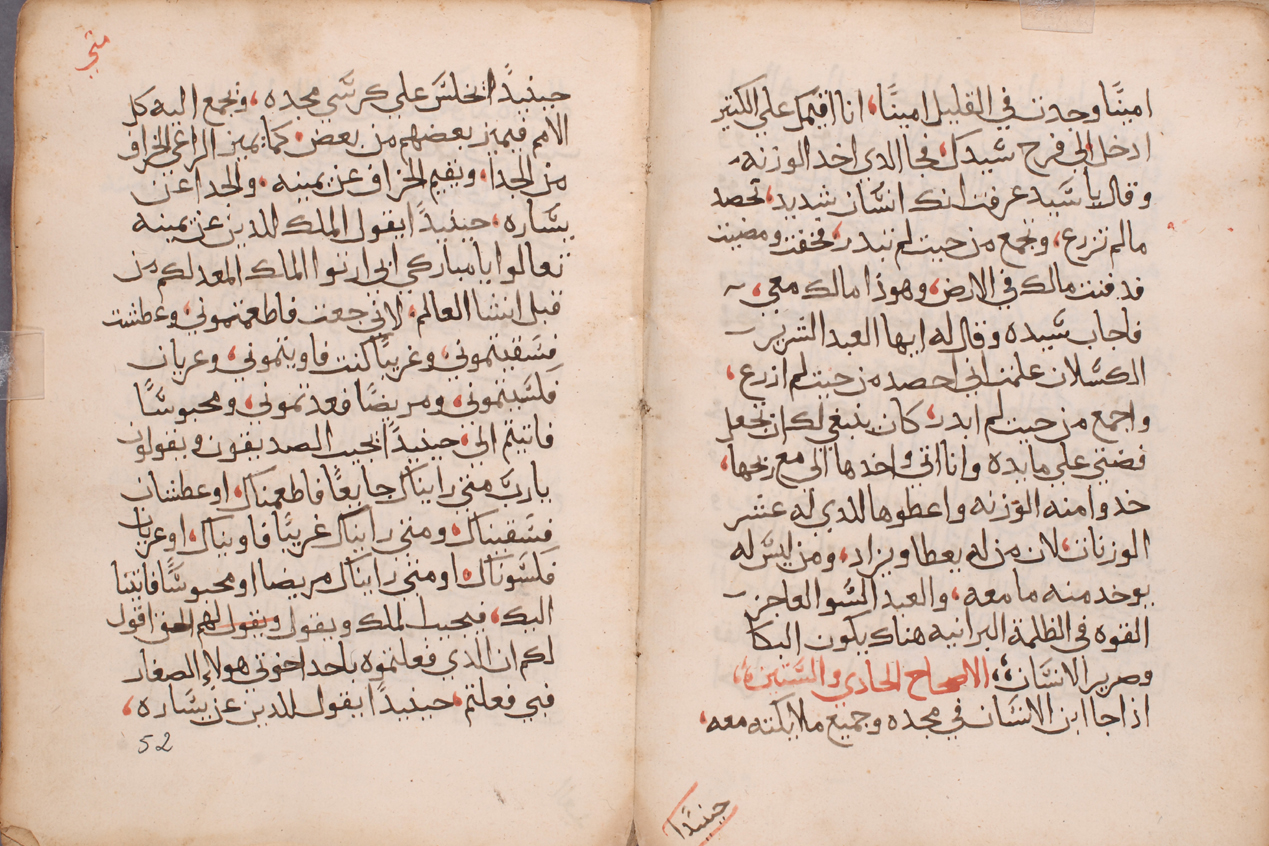 امينًا وجدت في القليل امينًا، انا اقيمك علي الكثير
ادخل الي فرح سيدك، فجا الدي اخد الوزنه
وقال يا سيد عرفت انك انسان شديد، تحصد
مالم تزرع، وتجمع من حيت لم تبدر، فخفت ومضيت
قد فنت مالك في الارض، وهودا مالك معي،
فاجاب سيده وقال له ايها العبد الشرير
الكسلان علمت اني احصد من حيت لم ازرع،
واجمع من حيت لم ابدر، كان ينبغي لك ان تجعل
فضتي علي مايده وانا اتي واخدها الي مع ربحها،
خدوا منه الوزنه واعطوها للدي له عشر
الوزنات، لان من له يعطا ويزاد، ومن ليس له
يوخد منه ما معه، والعبد السو العاجز
القوه في الظلمة البرانيه هناك يكون البكا
وصرير الاسنان، الاصحاح الحادي والستين،
ادا جا ابن الانسان في مجده وجميع ملايكته معه،
حينيدًا
متي
حينيدًا يجلس علي كرسي مجده، وتجمع اليه كل
الامم فيميز بعضهم من بعض، كما يميز الراعي الخراف
من الجدا، ويقيم الخراف عن يمينه، والجدا عن
يساره، حينيدًا يقول الملك للدين عن يمينه
تعالوا يا مباركي ابي ارتوا الملك المعد لكم من
قبل انشا العالم، لاني جعت فاطعمتموني، وعطشت
فسقيتموني، وغريبًا كنت فاويتموني، وعريان
فلسيتموني، ومريضًا فعدتموني، ومحبوسًا
فاتيتم الي، حينيدًا تجيب الصديقون ويقولون
يا رب متي رايناك جايعًا فاطعمناك، او عطشان
فسقيناك، ومتي رايناك غريبًا فاويناك، او عريان
فلسوناك، او متي رايناك مريضا او محبوسًا فاتينا
اليك، فيجيب الملك ويقول ويقول لهم الحق اقول
لكم ان الدي فعلتموه باحد اخوتي هولاء الصغار
فبي فعلتم، حينيدًا يقول للدين عن يساره،
52